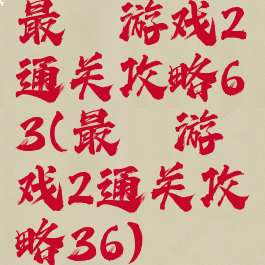 最 游戏2
通关攻略6
3(最 游
戏2通关攻
略36)